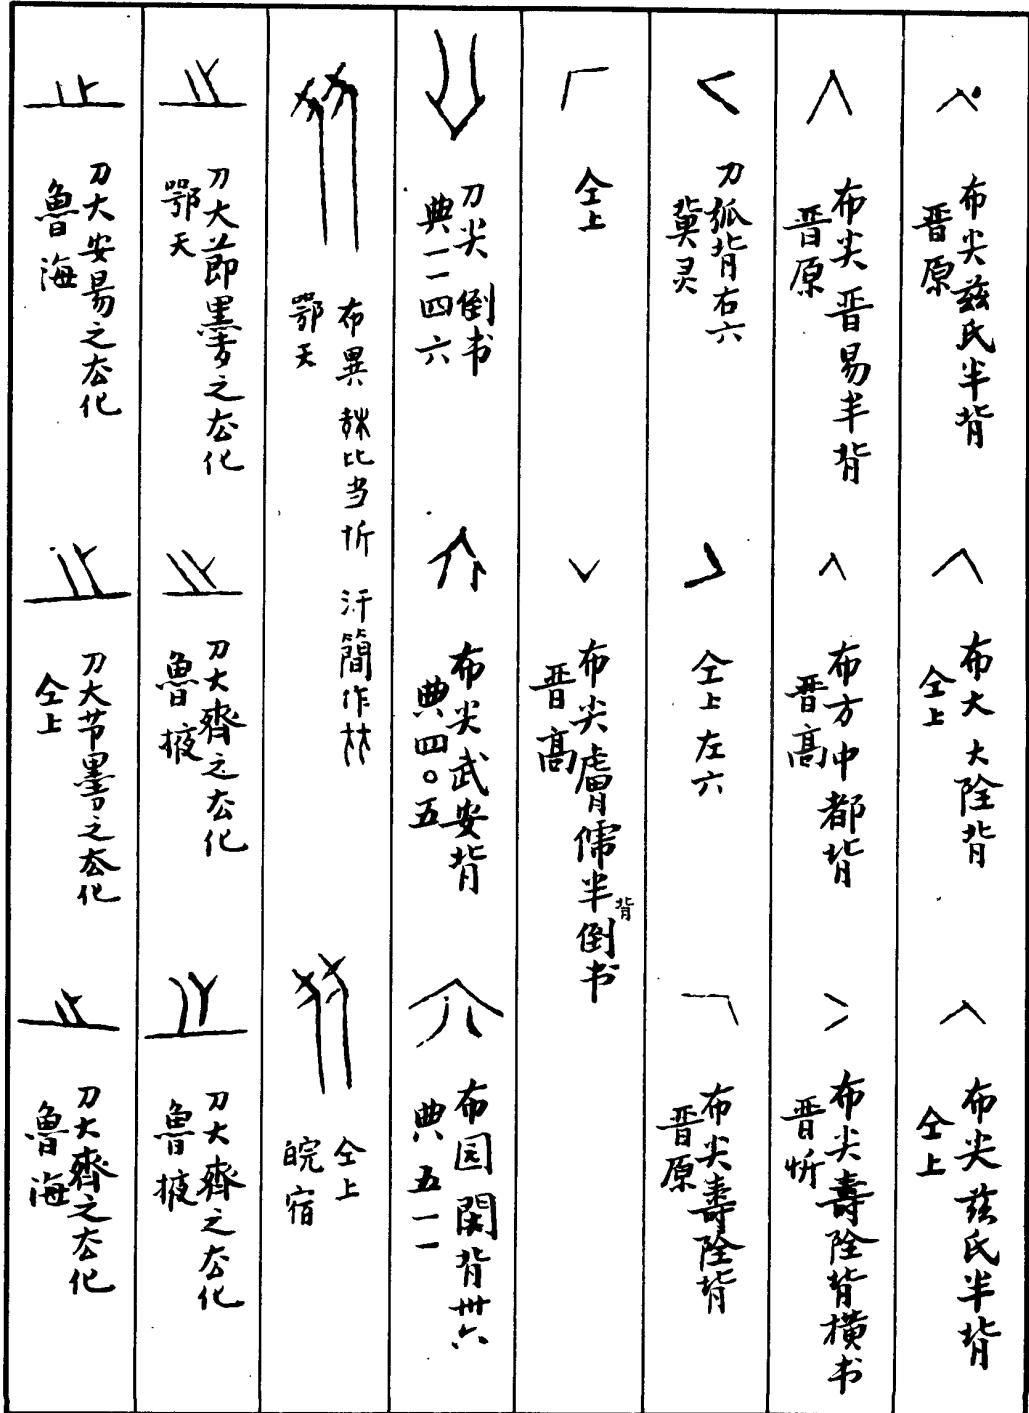 布尖兹氏半背
晋原
布大 大陰背
仝上
布尖兹氏半背
仝上
布尖晋昜半背
晋原
布方中都背
晋高
布尖壽陰背橫书
晋忻
刀狐背右六
冀灵
仝上左六
布尖壽陰背
晋原
仝上
布尖膚俿半背倒书
晋高
刀尖倒书
典一一四六
布尖武安背
典四〇五
布园閔背卅六
典五一一
布異 比当忻 汗簡作
鄂天
仝上
皖宿
刀大節墨之厺化
鄂天
刀大齊之厺化
魯掖
刀大齊之厺化
魯掖
刀大安昜之厺化
魯海
刀大节墨之厺化
仝上
刀大齊之厺化
魯海